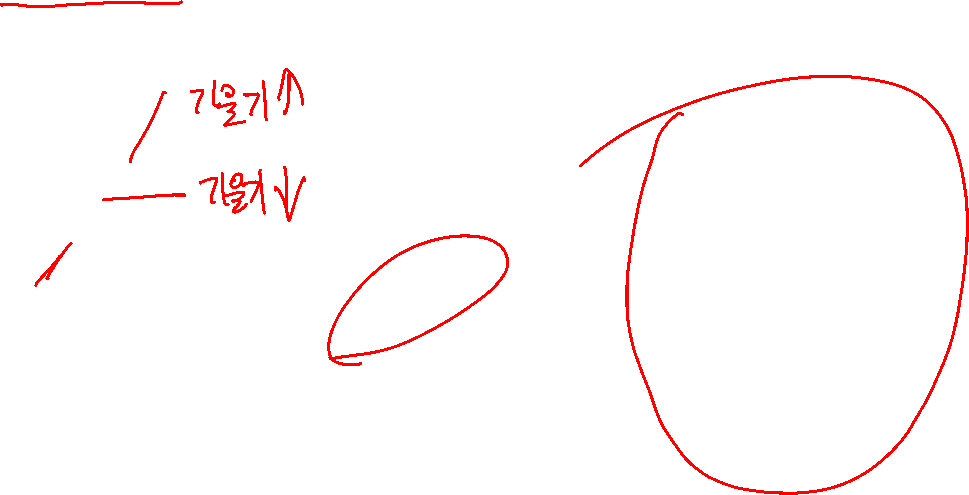 기울기↑
기울기↓